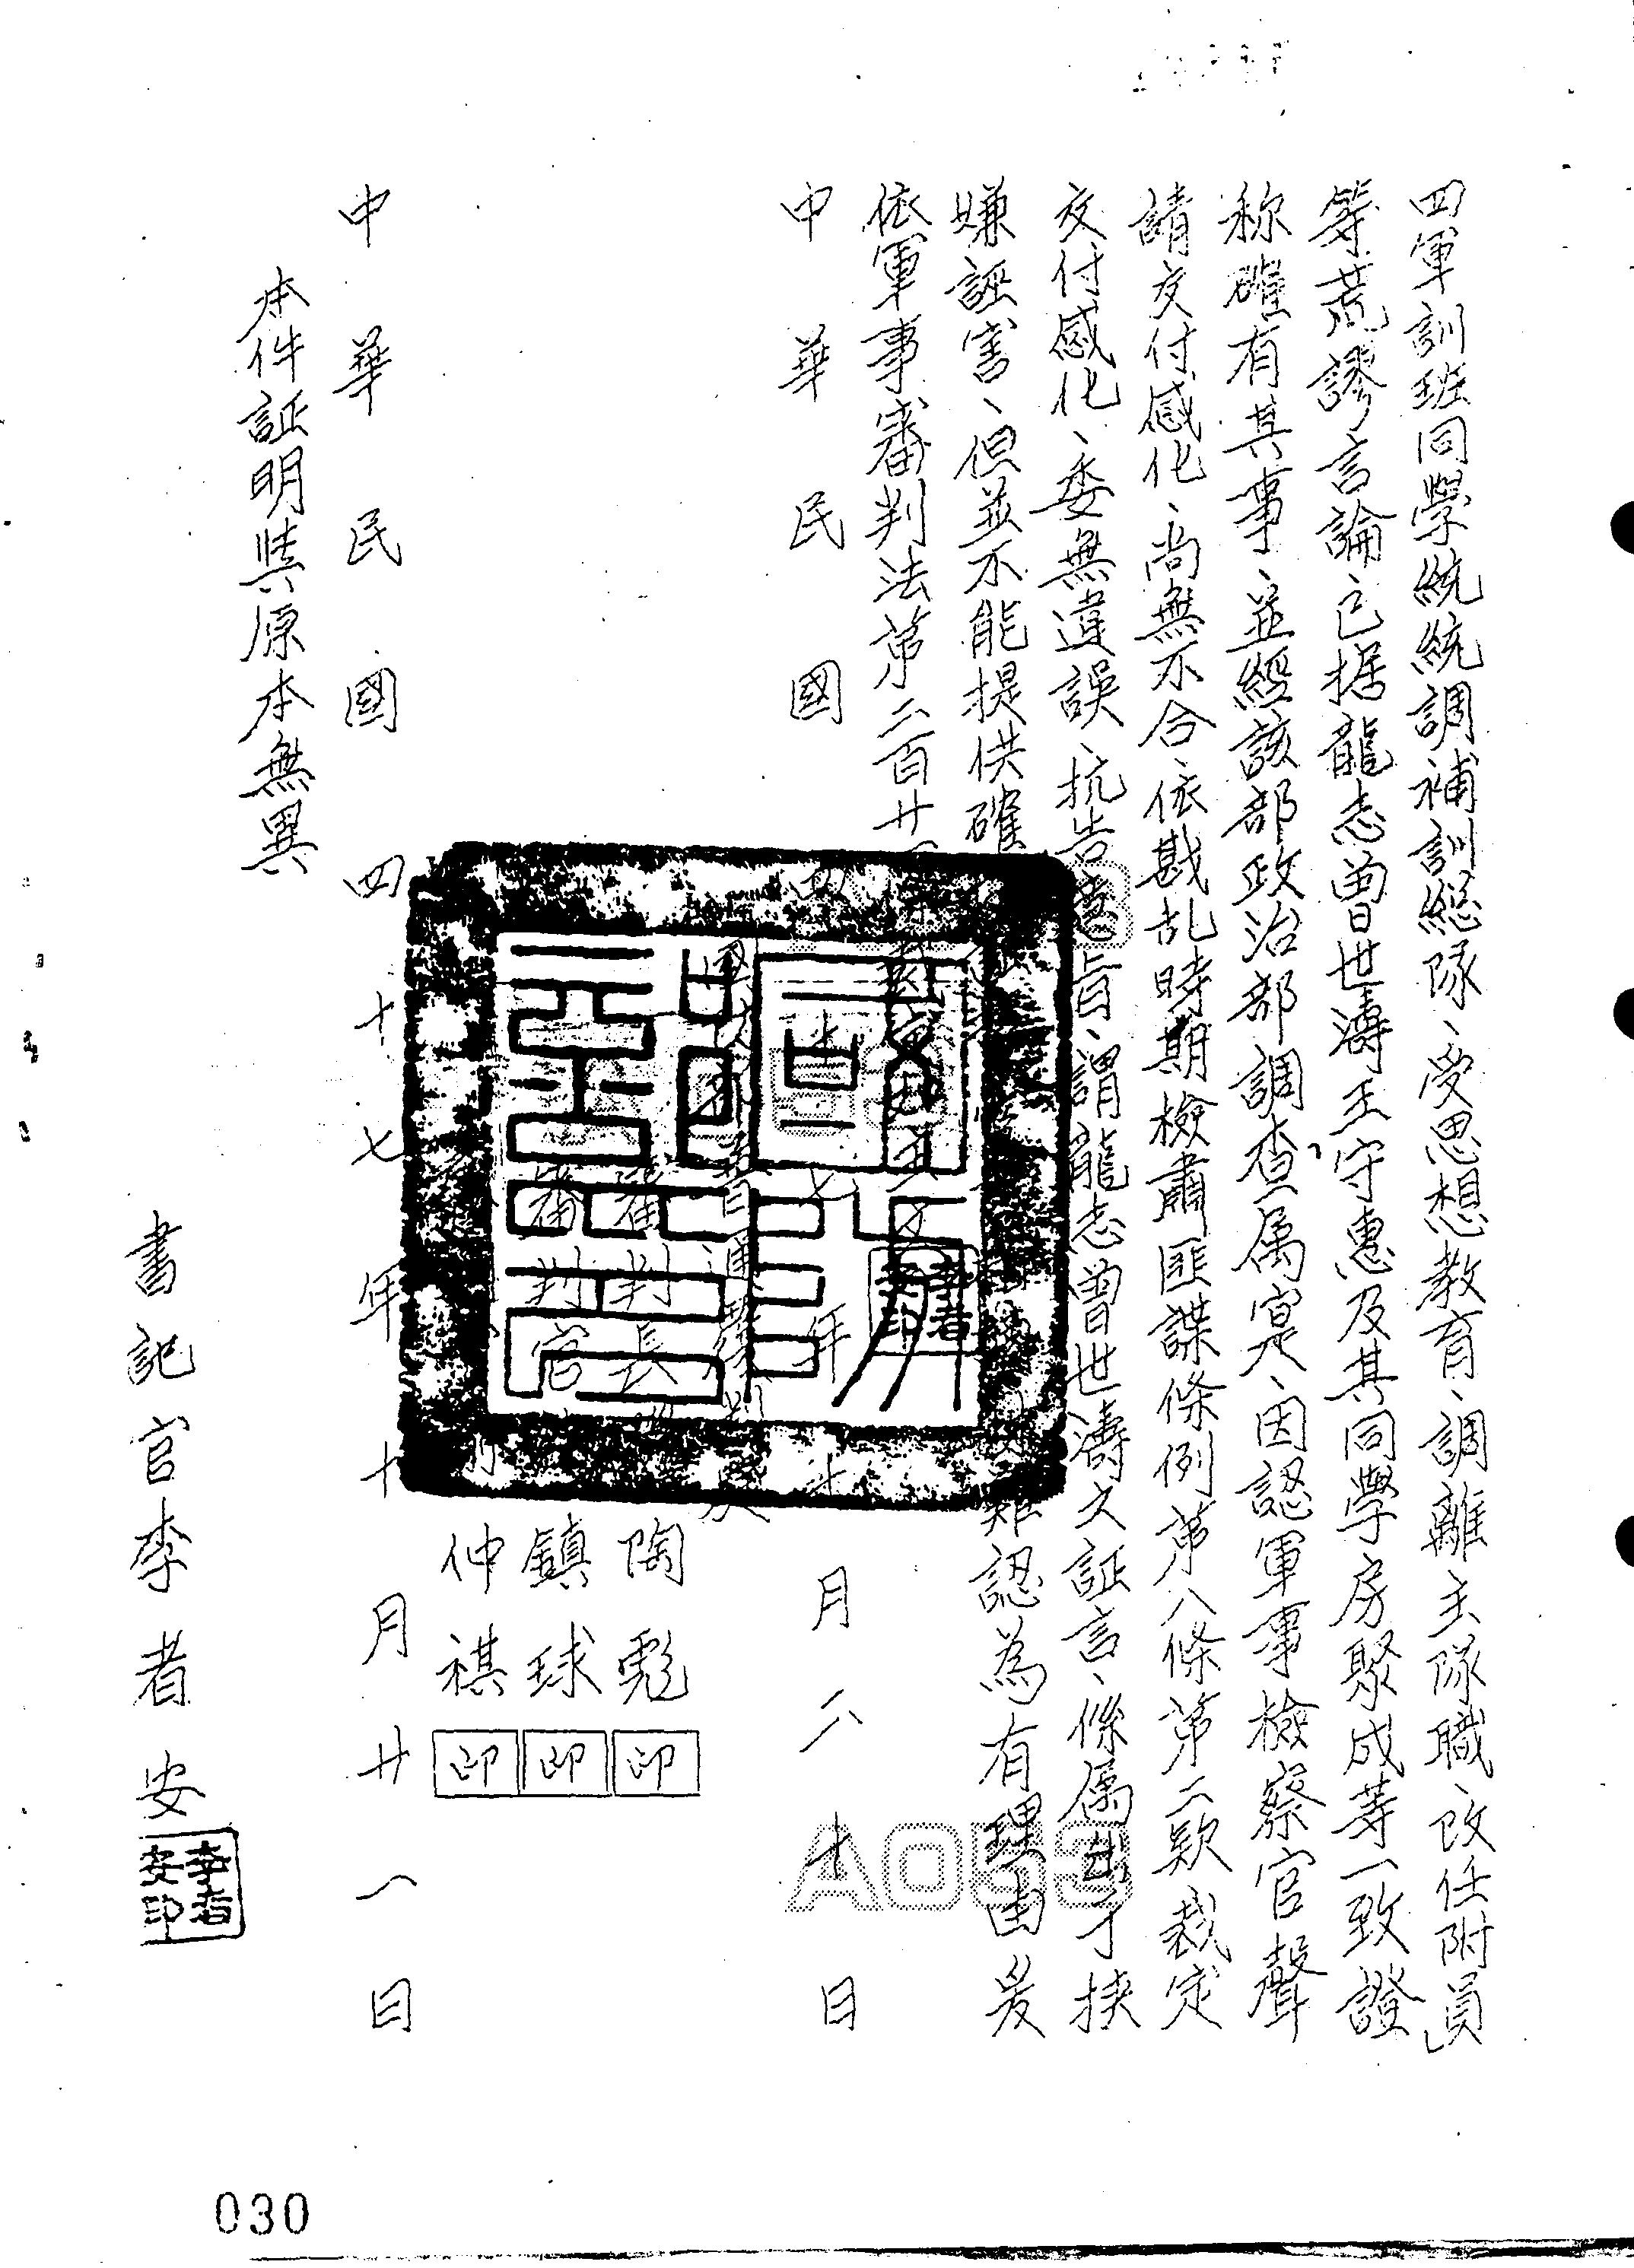 四軍訓班同學統統調補訓總隊、受思想教育、調離主隊職、改任附員
等荒謬言論已据龍志曾世濤王守惠及其同學房聚成等一致證
称確有其事、並經該部政治部調查属寔、因認軍事檢察官聲
請交付感化、尚無不合依戡乱時期檢肅匪諜條例第八條第二款裁定
交付感化、委無違誤、抗告意旨、謂龍志曾世濤之証言、係属挾
嫌誣害、但並不能提供確難認為有理由爰
依軍事審判法第二百廿
中華民國四十七年十月二十日
審判長陶
審判官鎮球
仲祺
印
印
印
中華民國四十七年十月廿一日
本件証明與原本無異
書記官李者安
李者安印
A053
030